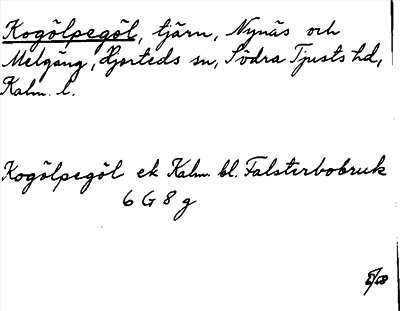 Kogölpegöl, tjärn, Nynäs och
Melgäng, Hjorteds sn, Södra Tjusts hd,
Kalm. l.
Kogölpegöl ek Kalm. bl. Falsterbobruk
6 G 8 g